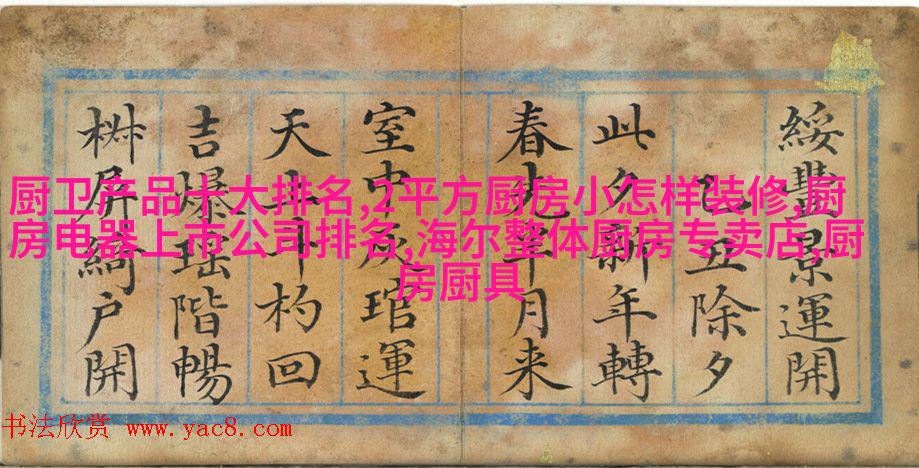 綏豐景運開
乙丑除夕
此夕新年轉
春月来
室中灰琯運
天上斗杓回
吉爆瑶階暢
椒屏綺户開
厨卫产品十大排名,2平方厨房小怎样装修,厨
房电器上市公司排名,海尔整体厨房专卖店,厨
房厨具
书法欣赏 www.yac8.com